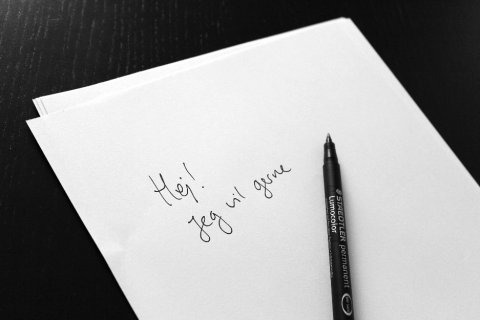 Hej!
Jeg vil gerne
STAEDTLER permanent
Lumocolor